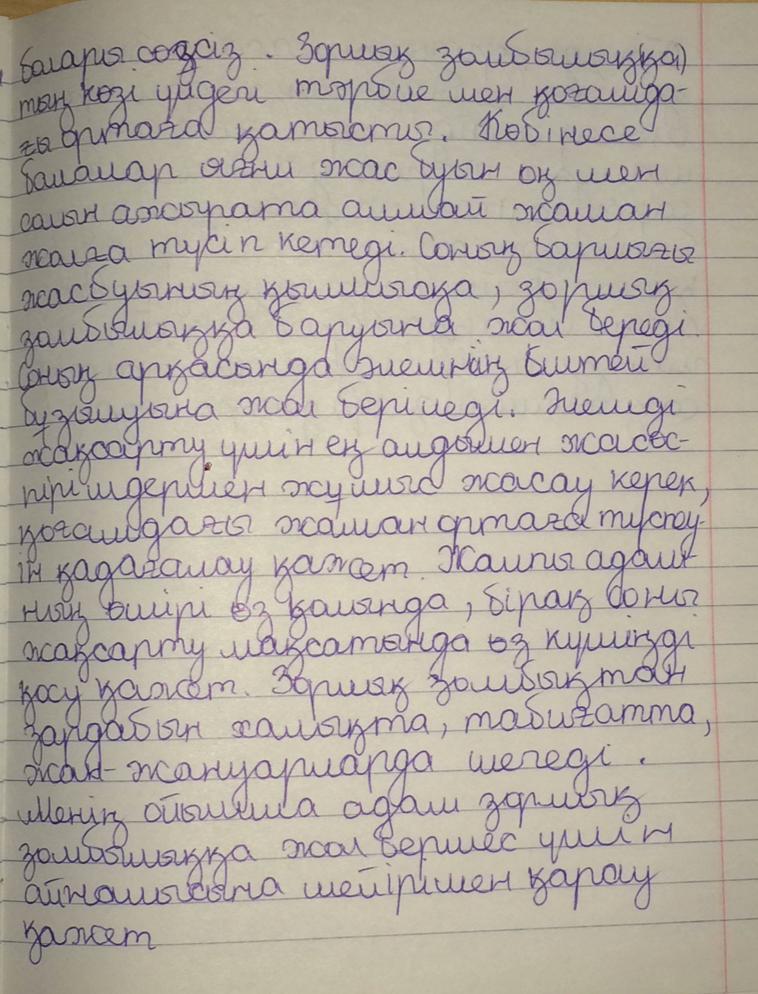 болары сөзсіз. Зорлық зомбылық(қа)
тың көзі үйдегі тәрбие мен қоғамда-
ғы ортаға қатысты. Көбінесе
балалар яғни жас буын оң мен
солын ажырата алмай жаман
жолға түсіп кетеді. Соның барлығы
жасбуының қылмысқа, зорлық
зомбылыққа баруына жол береді.
Соның арқасында әлемнің біштей
бұзылуына жол беріледі. Әлемді
жақсарту үшін ең алдымен жасөс-
пірімдермен жұмыс жасау керек,
қоғамдағы жаман ортаға түспеу-
ін қадағалау қажет. Жалпы адам-
ның өмірі өз қолында, бірақ соны
жақсарту мақсатында өз күшіңді
қосу қажет. Зорлық зомбықтан
зардабын халықта, табиғатта,
жан-жануарларда шегеді.
Менің ойымша адам зорлық
зомбылыққа жол бермес үшін
айналысына мейірімен қарау
қажет